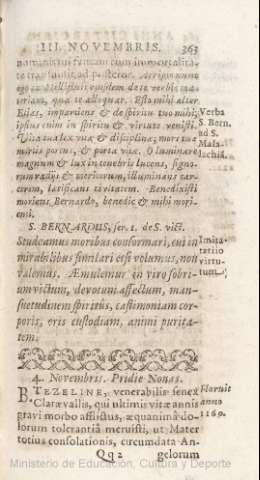 III. NOVEMBRIS. 363
nominis tui famam cum immortalitate transmisit ad posteros.
mellifluis ejusdem de te verbis
qua te alloquar. Esto mihi alter
Elias, impartiens & de spiritu tuo mihi;
ipsius enim in spiritu & virtute venisti.
Vita tua lex vitæ & disciplinæ; mors tua
mortis portus, & porta vitæ. O luminare
magnum & lux in tenebris lucens, signorum
radijs & meritorum, illuminans carcerem,
lætificans civitatem. Benedixisti
moriens Bernardo, benedic & mihi morienti.
Verba
S. Bern.
ad S.
Malachié.
S. BERNARDUS, ser. 1. de S. vict.
Studeamus moribus conformari, cui in
mirabilibus similari etsi volumus, non
valemus. Æmulemur in viro sobrium
victum, devotum affectum, mansuetudinem
spiritûs, castimoniam corporis,
oris custodiam, animi puritatem.
Imitatatiio
virtutum
4. Novembris. Pridie Nonas.
BTEZELINE, venerabilis senex
Claræ vallis, qui ultimis vitæ annis
gravi morbo afflictus, æquanimâ dolorum
tolerantiâ meruisti, ut Mater
totius consolationis, circumdata An-
Floruit
anno
1160.
Qq 2 gelorum
Ministerio de Educación, Cultura y Deporte